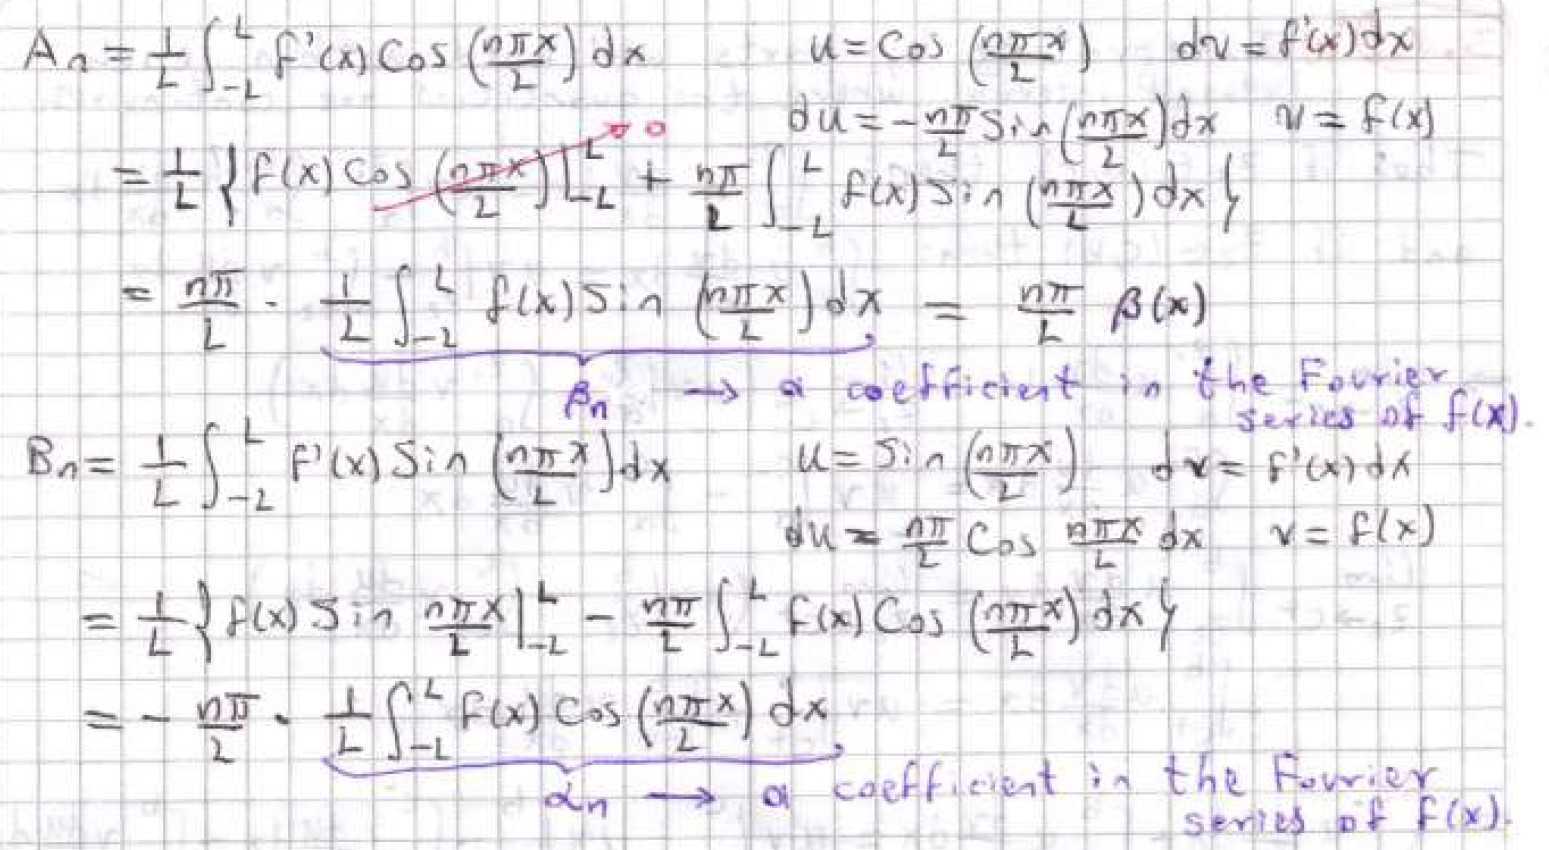 Aₙ = 1/L ∫_{-L}^{L} f'(x) Cos (nπx/L) dx    u = Cos (nπx/L)    dv = f'(x) dx
du = -nπ/L Sin (nπx/L) dx    v = f(x)
= 1/L { f(x) Cos (nπx/L) |_{-L}^{L} → 0 + nπ/L ∫_{-L}^{L} f(x) Sin (nπx/L) dx }
= nπ/L · 1/L ∫_{-L}^{L} f(x) Sin (nπx/L) dx = nπ/L β(x)
βₙ → a coefficient in the Fourier
series of f(x).
Bₙ = 1/L ∫_{-L}^{L} f'(x) Sin (nπx/L) dx    u = Sin (nπx/L)    dv = f'(x) dx
du = nπ/L Cos nπx/L dx    v = f(x)
= 1/L { f(x) Sin nπx/L |_{-L}^{L} - nπ/L ∫_{-L}^{L} f(x) Cos (nπx/L) dx }
= - nπ/L · 1/L ∫_{-L}^{L} f(x) Cos (nπx/L) dx
αₙ → a coefficient in the Fourier
series of f(x).